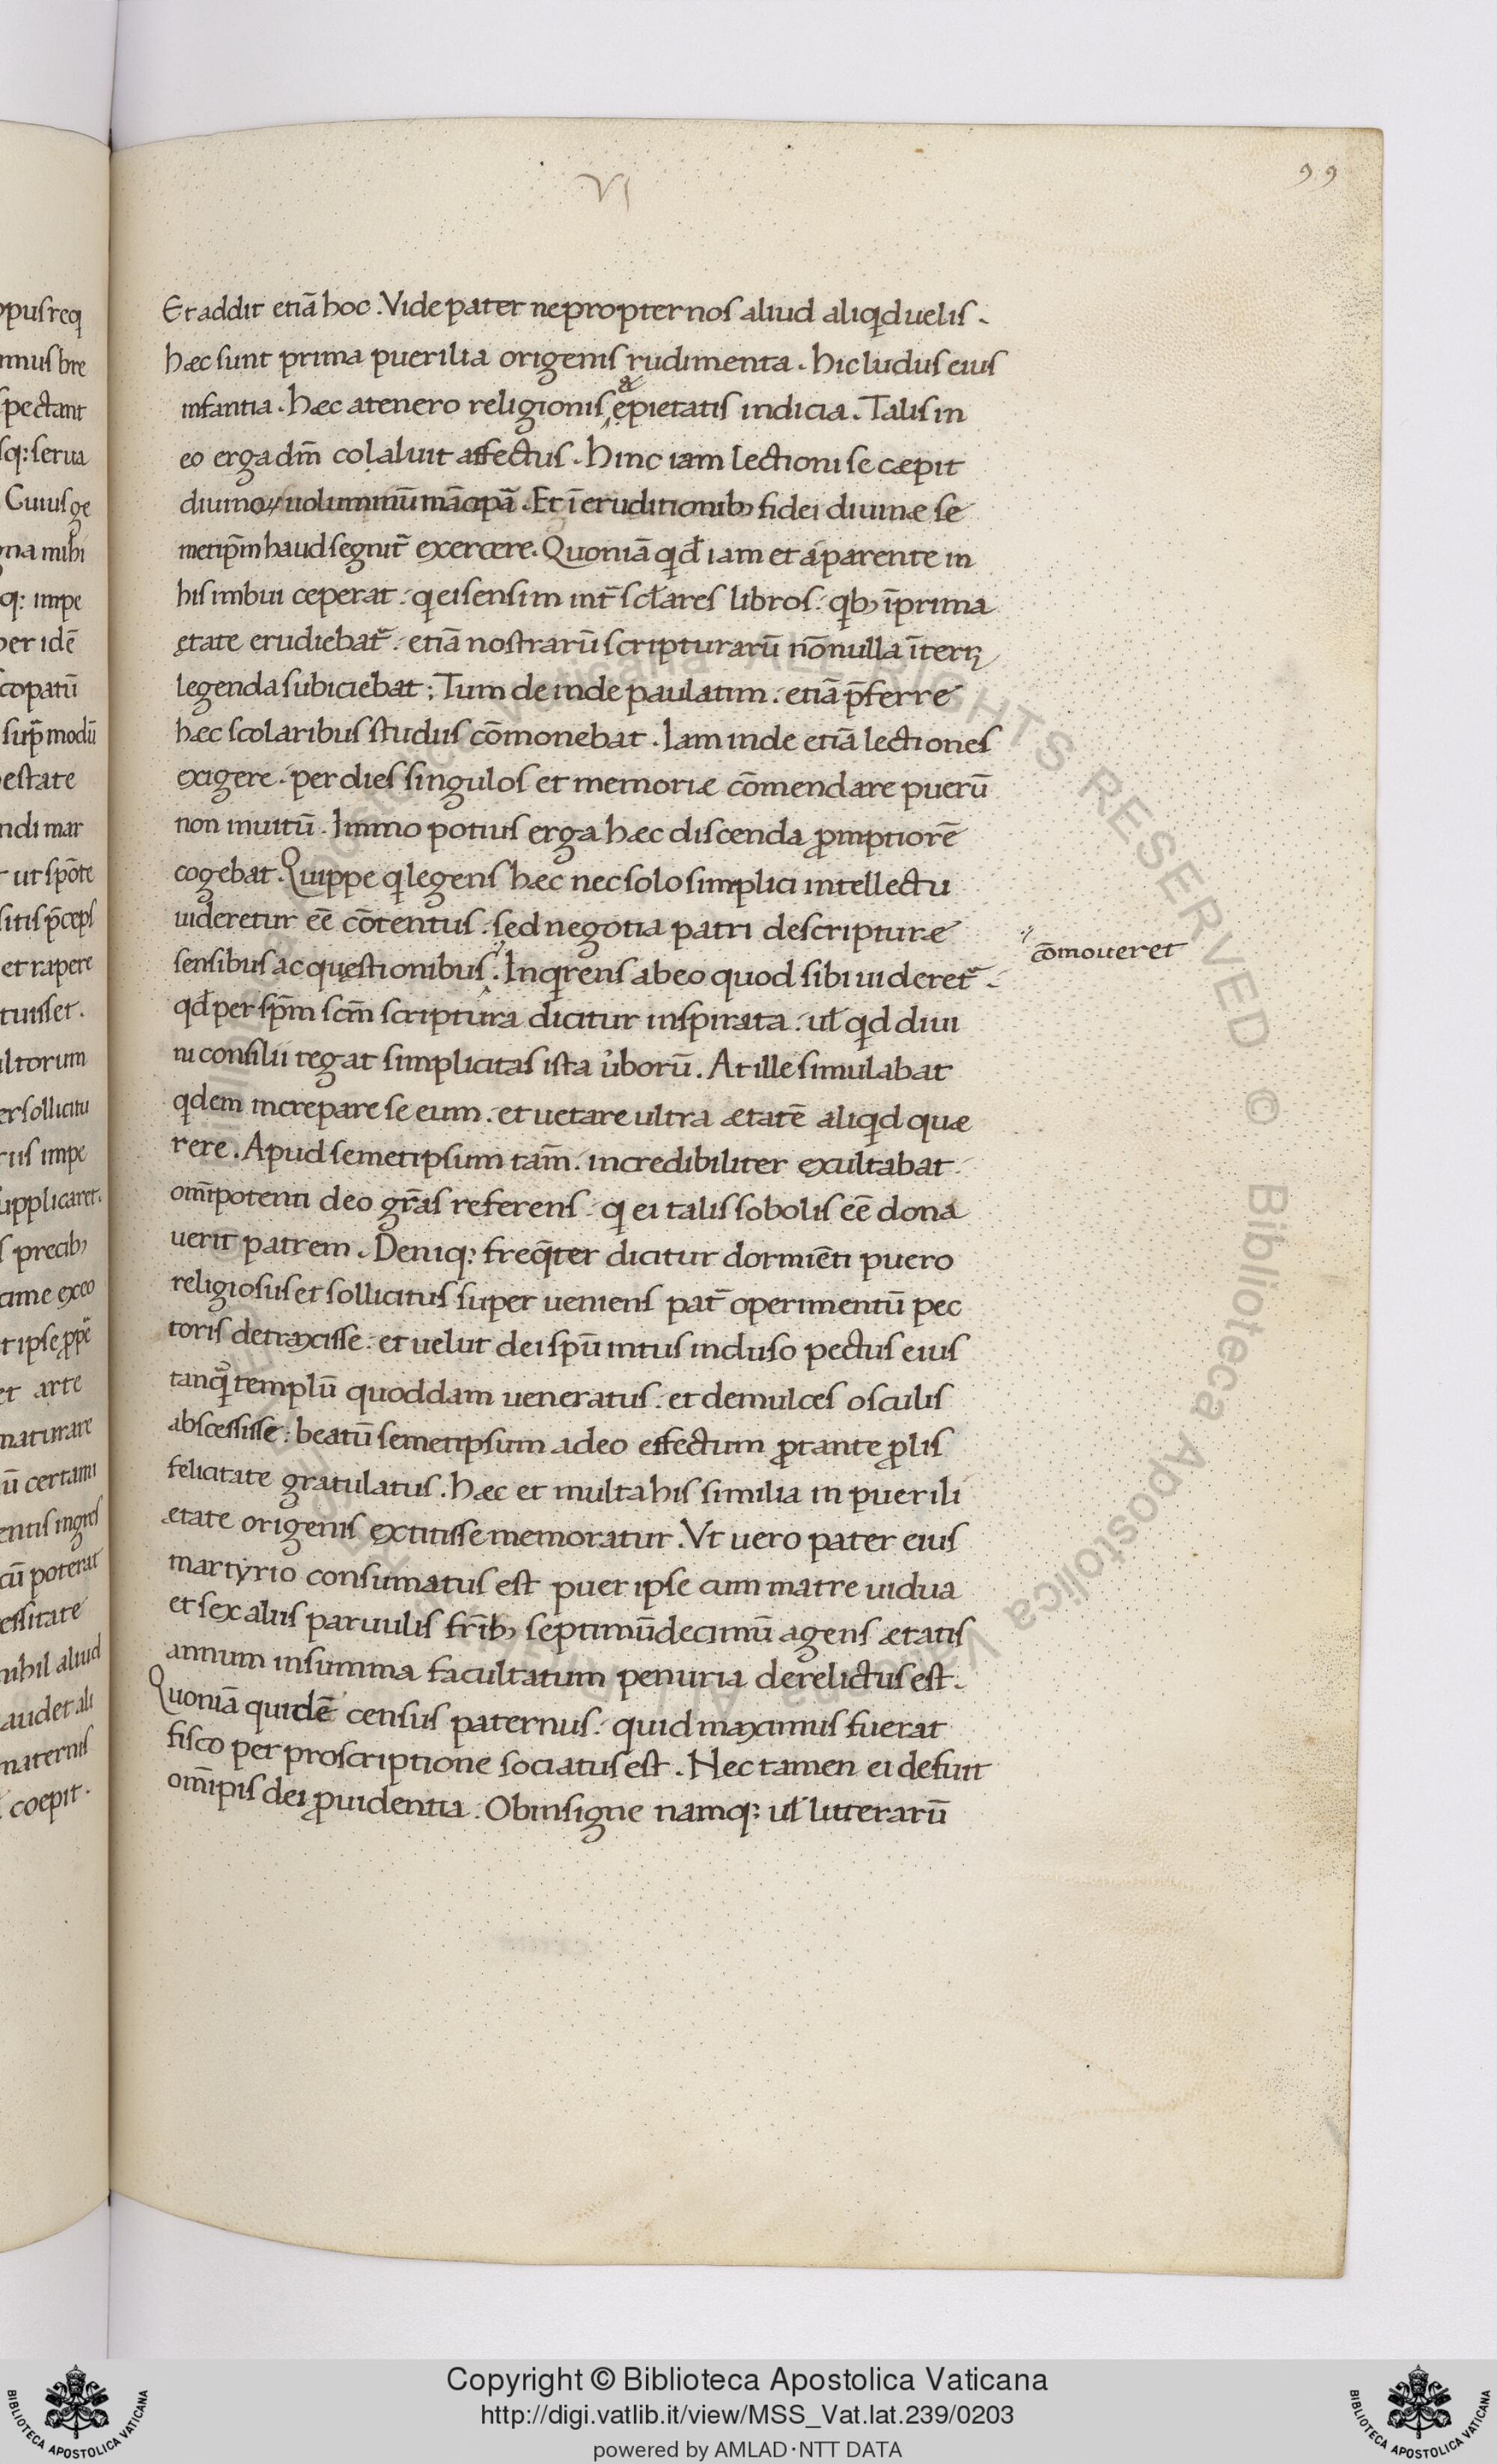 VI
99
opus req
mus bre
spectant
sq: serua
Cuius ge
na mihi
q: impe
er idē
copatū
sup̄ modū
estate
ndi mar
ut spōte
sitis p̄ceps
et rapere
tuisset.
ultorum
er sollicitu
rus impe
upplicaret.
s precib;
cime exeo
t ipse
et arte
naturare
ū certami
entis ingres
cū poterat
essitate
nihil aliud
audet ali
maternis
coepit.
Et addit etiā hoc. Vide pater ne propter nos aliud aliqd uelis.
hæc sunt prima puerilia origenis rudimenta. hic ludus eius
infantia. hæc a tenero religionis & pietatis indicia. Talis in
eo erga dm̄ coalaluit affectus. hinc iam lectioni se cæpit
diuinoꝝ uoluminū mācipā. Et ī eruditionib; fidei diuinæ se
metip̄m haud segnit̄ exercere. Quoniā qd̄ iam et a parente in
his imbui ceperat. q ei sensim int̄ sclares libros. qb; ī prima
ętate erudiebat̄. etiā nostrarū scripturarū nōnulla īterꝝ
legenda subiciebat; Tum deinde paulatim. etiā p̄ferre
hæc scolaribus studiis cōmonebat. Iam inde etiā lectiones
exigere. per dies singulos et memoriæ cōmendare puerū
non inuitū. Immo potius erga hæc discenda ꝓmptiorē
cogebat. Quippe q legens hæc nec solo simplici intellectu
uideretur eē cōtentus. sed negotia patri de scripturæ
sensibus ac quęstionibus. Inqrens ab eo quod sibi uideret̄.
cōmoueret
qd̄ per sp̄m scm̄ scriptura dicitur inspirata. ul̄ qd diui
ni consilii tegat simplicitas ista u̓borū. At ille simulabat
qdem increpare se eum. et uetare ultra ætatē aliqd quæ
rere. Apud semetipsum tam̄. incredibiliter exultabat.
om̄ipotenti deo gr̄as referens. q ei talis sobolis eē dona
uerit patrem. Deniq: freq̄ter dicitur dormiēti puero
religiosus et sollicitus super ueniens pat̄ operimentū pec
toris detraxisse. et uelut dei spū intus incluso pectus eius
tanq̄ templū quoddam ueneratus. et demulces osculis
abscessisse: beatū semetipsum adeo effectum ꝓ tante ꝓlis
felicitate gratulatus. hæc et multa his similia in puerili
ætate origenis extitisse memoratur. Vt uero pater eius
martyrio consumatus est puer ipse cum matre uidua
et sex aliis paruulis fr̄ib; septimūdecimū agens ætatis
annum in summa facultatum penuria derelictus est.
Quoniā quidē census paternus. quid maximus fuerat
fisco per proscriptione sociatus est. Nec tamen ei defuit
om̄ipis dei ꝓuidentia. Ob insigne namq: ul̄ litterarū
Copyright © Biblioteca Apostolica Vaticana
http://digi.vatlib.it/view/MSS_Vat.lat.239/0203
powered by AMLAD·NTT DATA
BIBLIOTECA APOSTOLICA VATICANA
BIBLIOTECA APOSTOLICA VATICANA